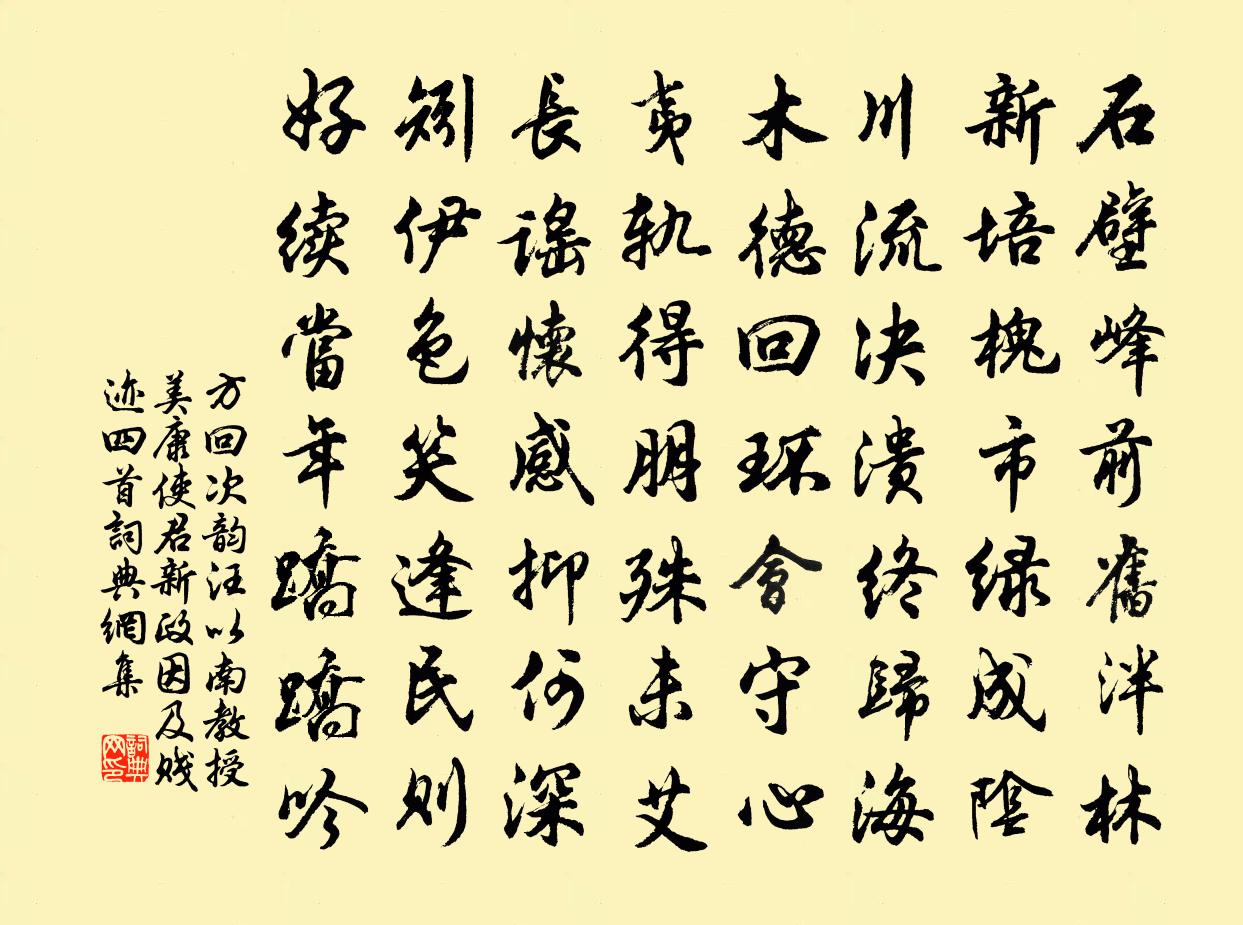 石壁峰前舊泮林
新培槐市緑成陰
川流决潰終歸海
木德回环會守心
夷軌得朋殊未艾
長謡懷感抑何深
矧伊色笑逢民则
好续當年蹻蹻吟
方回次韵汪以南教授
美康使君新政因及贱
迹四首詞典網集
詞典网印